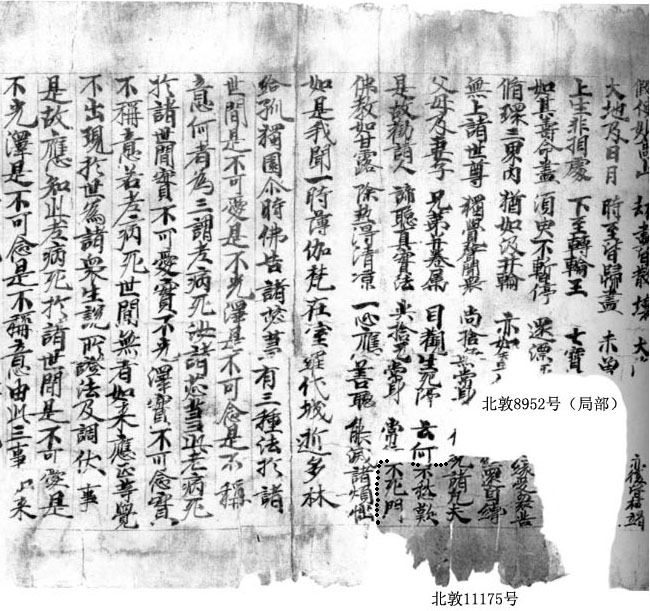 假使妙高山 劫盡皆散壞 大 亦復皆枯竭
大地及日月 時至皆歸盡 未曾
上生非想處 下至轉輪王 七寶
如其壽命盡 須臾不暫停 還漂 緣受衆苦
循環三界內 猶如汲井輪 亦如 還自縛
無上諸世尊 獨覺聲聞衆 尚捨無常身 況諸凡夫
父母及妻子 兄弟并眷屬 目觀生死隔 云何不愁歎
是故勸諸人 諦聽真實法 共捨無常身 當 不死門
佛教如甘露 除熱得清凉 一心應善聽 能滅諸煩惱
如是我聞一時薄伽梵在室羅代城逝多林
給孤獨園尒時佛告諸苾芻有三種法於諸
世間是不可愛是不光澤是不可念是不稱
意何者為三謂老病死汝諸苾芻此老病死
於諸世間實不可愛實不光澤實不可念實
不稱意若老病死世間無者如来應正等覺
不出現於世為諸衆生說所證法及調伏事
是故應知此老病死於諸世間是不可愛是
不光澤是不可念是不稱意由此三事如来
北敦8952号（局部）
北敦11175号